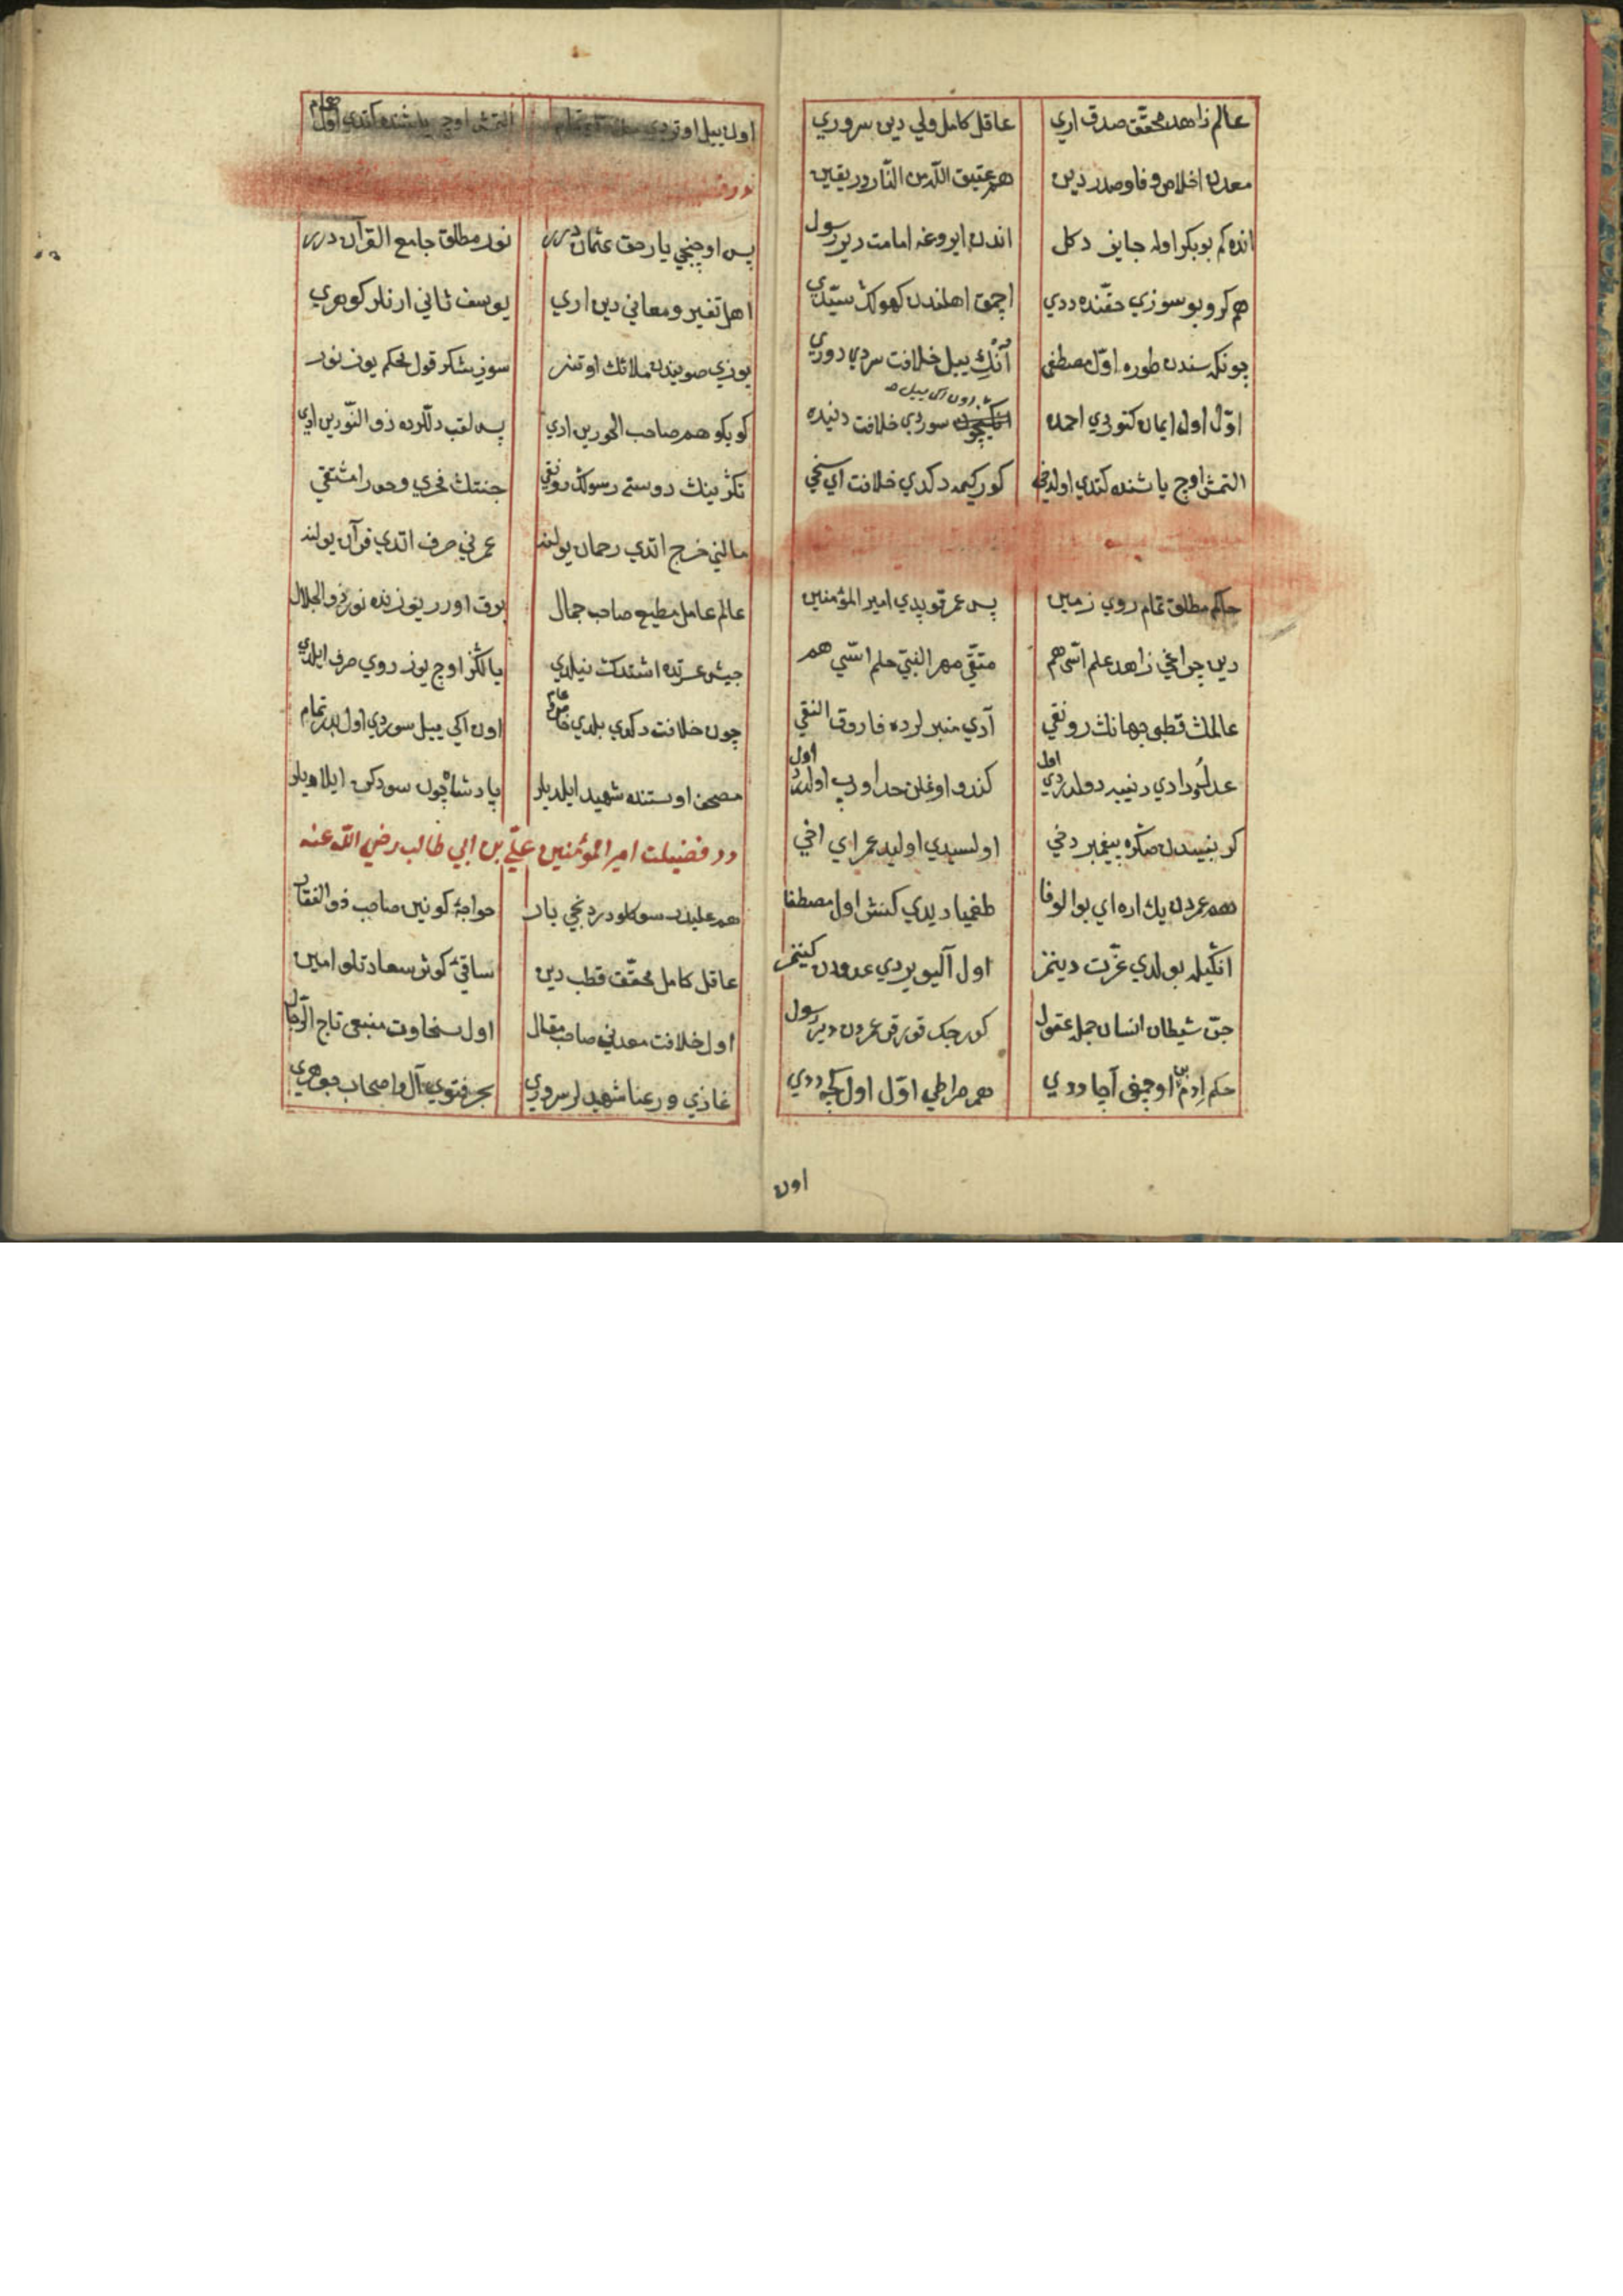 عالم زاهد محقّق صدق اري عاقل كامل ولي دين سروري
معدن اخلاص و فا و صدر دين هم عتيق اللّه من النّار در يقين
انده كم بو بكر اوله جايز دكل اندن ايروغه امامت دير رسول
هم كرو بو سوزي حقّنده ددي اچمق اهلندن كهولك سيّدي
چونكه سندن طوره اوّل مصطفى آنك ييل خلافت سردي دوري
اوّل اول ايمان كتوردي احمده سوردي خلافت دنيده
التمش اوچ ياشنده كتدي اول دخي كور كيمه دكدي خلافت اي سخي
حاكم مطلق تمام روي زمين پس عمر قوپدي امير المؤمنين
دين چراغي زاهد علم اسّي هم متّقي مهر النبيّ حلم اسّي هم
عالمك قطبي جهانك رونقي آدي منبر لرده فاروق النقي
عدلله دادي دنييه دولدردي اول كندو اوغلن حد اورب اولدردي اول
كر بنيسدن صكره پيغمبر دخي اولسيدي اوليد عمر اي اخي
هم عمر دن يك اره اي بو الوفا طغميا ديدي كنش اول مصطفا
انكيله بولدي عزّت دينمز اول آليويردي عدودن كينمز
جنّ شيطان انسان جمله عقول كورجك قورقر عمردن دير رسول
حكم ادم بن اوچمقى آچا ددي هم صراطي اوّل اول كچه ددي
اون
اون ييل اوتردي التمش اوچ ياشنده كتدي اول همام
پس اوچنجي يار حق عثمان درر نور مطلق جامع القرآن درر
اهل تفسير و معاني دين اري يوسف ثاني ارنلر كوهري
يوزي صويندن ملائك اوتنر سوز شكر قول محكم يوز نور
كو بكو هم صاحب الحورين ادي پس لقب دللرده ذو النّورين ادي
تكرينك دوستي رسولك رونقي جنتك فخري و حور امشتقي
مالني خرج اتدي رحمان يولنه عمرني صرف اتدي قرآن يولنه
عالم عامل مطيع صاحب جمال برق اورر يوزنده نور ذو الجلال
جيش عسرتده اشتدك نيلدي يالكز اوچ يوز روي صرف ايلدي
چون خلافت دكدي بلدي خاص عام اون اكي ييل سوردي اول بدر تمام
مصحف اوستنده شهيد ايلديلر پادشاه چون سودكن ايلا ديلر
در فضيلت امير المؤمنين علي بن ابي طالب رضي اللّه عنه
هم عليدر سوكلو دردنجي يار خواجهٔ كونين صاحب ذو الفقار
عاقل كامل محقّق قطب دين ساقئ كوثر سعادتلو امين
اول خلافت معدني صاحب مقال اول سخاوت منبعي تاج الرّجال
غازي و رعنا شهيدلر سروري بحر فتوي آل و اصحاب جوهري